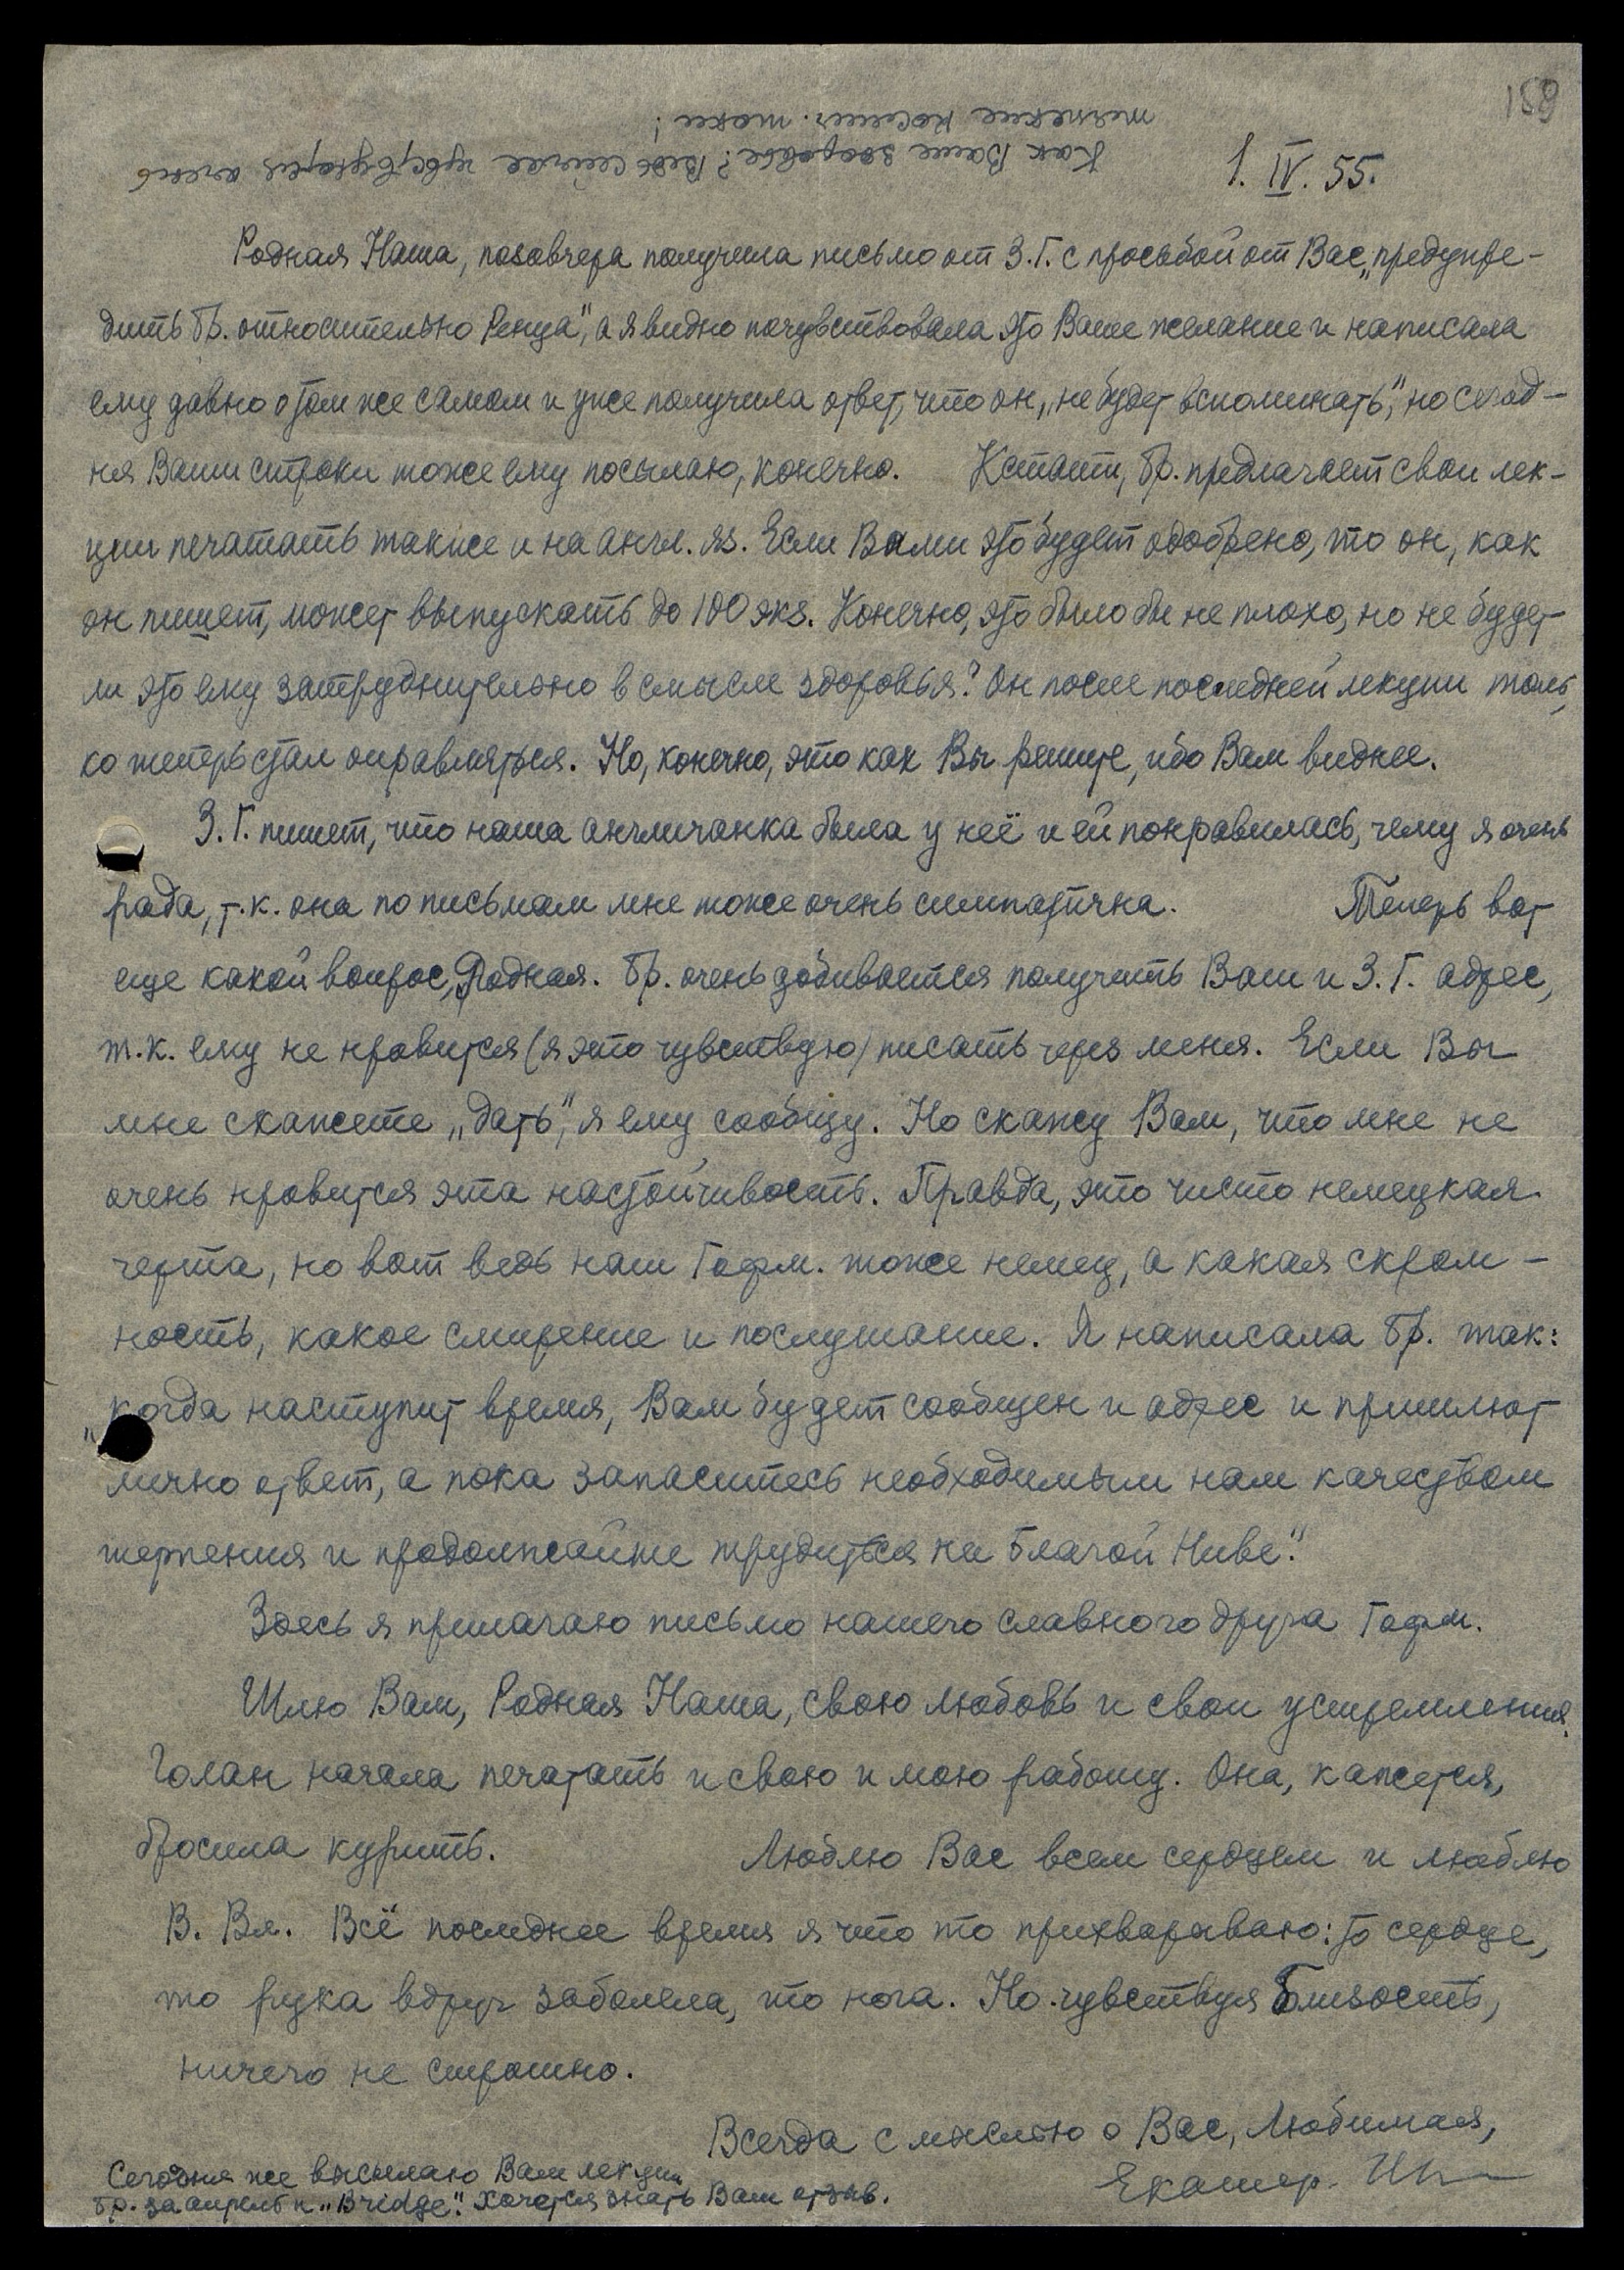 159
1. IV. 55.
Родная Наша, позавчера получила письмо от З.Г. с просьбой от Вас „предупре-
дить Бр. относительно Ренца", а я видно почувствовала это Ваше желание и написала
ему давно о том же самом и уже получила ответ, что он „не будет вспоминать", но сегод-
ня Ваши строки тоже ему посылаю, конечно. Кстати, Бр. предлагает свои лек-
ции печатать также и на англ. яз. Если Вами это будет одобрено, то он, как
он пишет, может выпускать до 100 экз. Конечно, это было бы не плохо, но не будет
ли это ему затруднительно в смысле здоровья? Он после последней лекции толь
ко теперь стал оправляться. Но, конечно, это как Вы решите, ибо Вам виднее.
З.Г. пишет, что наша англичанка была у неё и ей понравилась, чему я очень
рада, т.к. она по письмам мне тоже очень симпатична. Теперь вот
еще какой вопрос, Родная. Бр. очень добивается получить Ваш и З.Г. адрес,
т.к. ему не нравится (я это чувствую) писать через меня. Если Вы
мне скажете „дать", я ему сообщу. Но скажу Вам, что мне не
очень нравится эта настойчивость. Правда, это чисто немецкая
черта, но вот ведь наш Гофм. тоже немец, а какая скром-
ность, какое смирение и послушание. Я написала Бр. так:
„когда наступит время, Вам будет сообщен и адрес и пришлют
лично ответ, а пока запаситесь необходимым нам качеством
терпения и продолжайте трудиться на Благой Ниве".
Здесь я прилагаю письмо нашего славного друга Гофм.
Шлю Вам, Родная Наша, свою любовь и свои устремления.
Голан начала печатать и свою и мою работу. Она, кажется,
бросила курить. Люблю Вас всем сердцем и люблю
В. Вл. Всё последнее время я что то прихварываю: то сердце,
то рука вдруг заболела, то нога. Но чувствуя Близость,
ничего не страшно.
Всегда с мыслью о Вас, Любимая,
Екатер.
Сегодня же высылаю Вам лекции
Бр. за апрель и „Bridge". Хочется знать Ваш отзыв.
Как Ваше здоровье? Ведь сейчас чувствуются очень
тяжелые космич. токи!